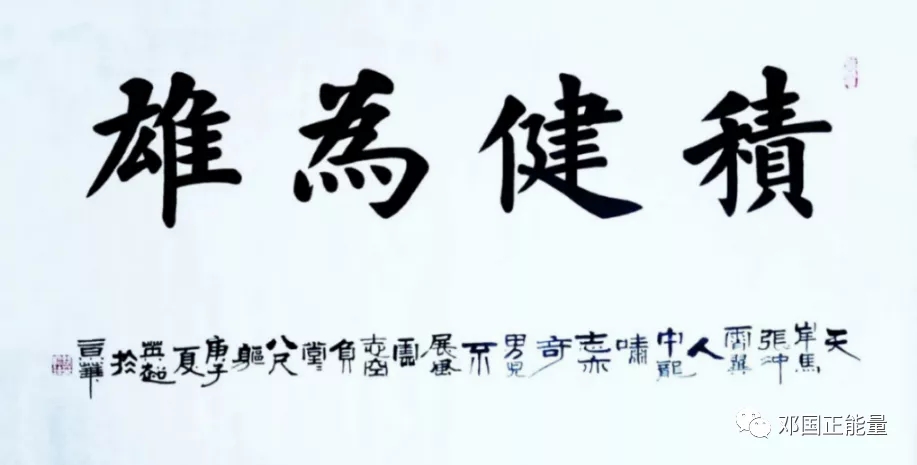 積健為雄
天岸馬張冲霄翼人中龍嘯志亦奇男兒不展風雲志空負堂八尺軀庚子夏興超於京華
邓国正能量